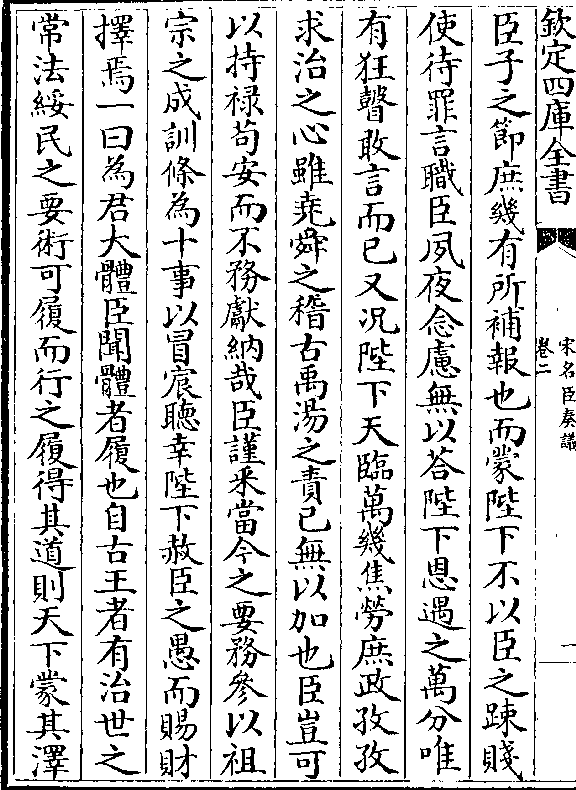 欽定四庫全書
宋名臣奏議
卷二
一
臣子之節庶幾有所補報也而蒙陛下不以臣之踈賤
使待罪言職臣夙夜念慮無以荅陛下恩遇之萬分唯
有狂瞽敢言而已又况陛下天臨萬幾焦勞庶政孜孜
求治之心雖堯舜之稽古禹湯之責己無以加也臣豈可
以持禄苟安而不務獻納哉臣謹采當今之要務參以祖
宗之成訓條為十事以冒宸聽幸陛下赦臣之愚而賜財
擇焉一曰為君大體臣聞體者履也自古王者有治世之
常法綏民之要術可履而行之履得其道則天下蒙其澤